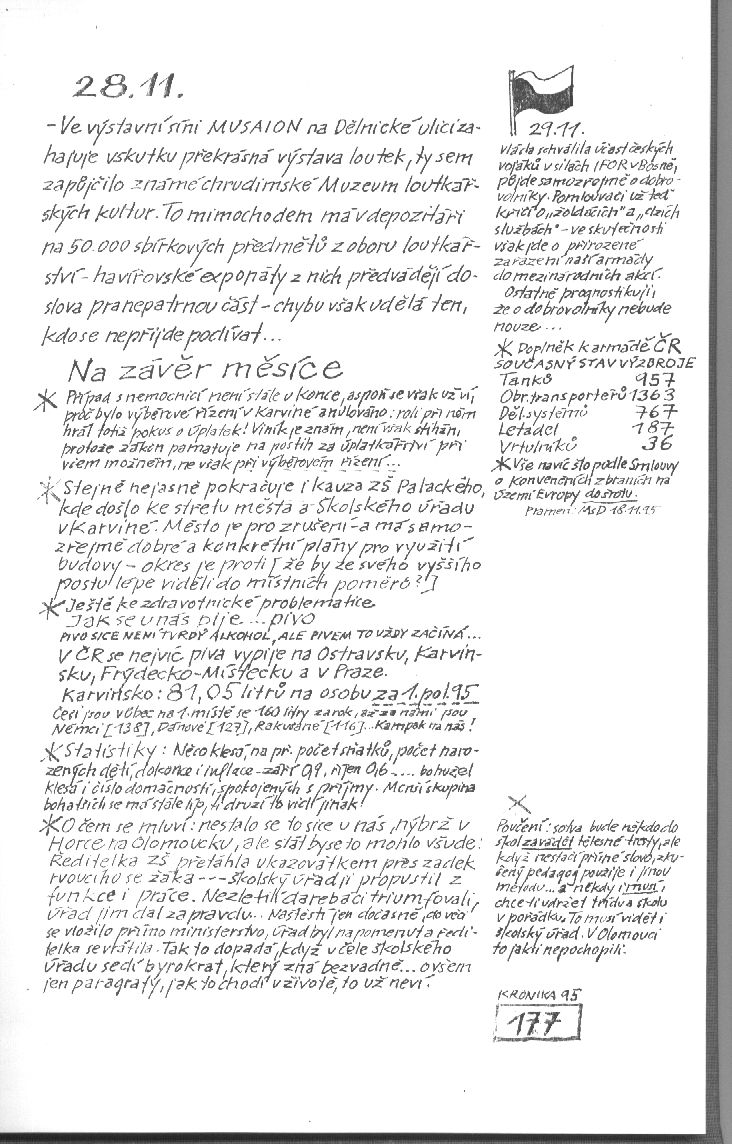 28.11.
-Ve výstavní síni MUSAION na Dělnické ulici za-
hajuje vskutku překrásná výstava loutek, ty sem
zapůjčilo známé chrudimské Muzeum loutkář-
ských kultur. To mimochodem má v depozitáři
na 50.000 sbírkových předmětů z oboru loutkář-
ství - havířovské exponáty z nich předvádějí do-
slova pranepatrnou část - chybu však udělá ten,
kdo se nepřijde podívat...
Na závěr měsíce
* Případ s nemocnicí není stále u konce, aspoň se však už ví,
proč bylo výběrové řízení v Karviné anulováno: roli při něm
hrál totiž pokus o úplatek! Viník je znám, není však stíhán,
protože zákon pamatuje na postih za úplatkářství při
všem možném, ne však při výběrovém řízení...
* Stejně nejasně pokračuje i kauza ZŠ Palackého,
kde došlo ke střetu města a Školského úřadu
v Karviné. Město je pro zrušení - a má samo-
zřejmě dobré a konkrétní plány pro využití
budovy - okres je proti [že by ze svého vyššího
postu lépe viděli do místních poměrů?]
* Ještě ke zdravotnické problematice.
Jak se u nás pije... pivo
PIVO SICE NENÍ TVRDÝ ALKOHOL, ALE PIVEM TO VŽDY ZAČÍNÁ...
V ČR se nejvíc piva vypije na Ostravsku, Karvin-
sku, Frýdecko-Místecku a v Praze.
Karvinsko: 81,05 litrů na osobu za 1. pol. 95
Češi jsou vůbec na 1. místě se 160 litry za rok, až za námi jsou
Němci [138], Dánové [127], Rakušané [116]... Kampak na nás!
* Statistiky: Něco klesá, na př. počet sňatků, počet naro-
zených dětí, dokonce i inflace - září 0,9, říjen 0,6 .... bohužel
klesá i číslo domácností, spokojených s příjmy. Menší skupina
bohatších se má stále líp, ti druzí to vidí jinak!
* O čem se mluví: nestalo se to sice u nás, nýbrž v
Horce na Olomoucku, ale stát by se to mohlo všude:
Ředitelka ZŠ přetáhla ukazovátkem přes zadek
rvoucího se žáka --- školský úřad ji propustil z
funkce i práce. Nezletilí darebáci triumfovali,
úřad jim dal zapravdu... Naštěstí jen dočasně, do věci
se vložilo přímo ministerstvo, úřad byl napomenut a ředi-
telka se vrátila. Tak to dopadá, když v čele školského
úřadu sedí byrokrat, který zná bezvadně... ovšem
jen paragrafy, jak to chodí v životě, to už neví.
29.11.
vláda schválila účast českých
vojáků v silách IFOR v Bosně,
půjde samozřejmě o dobro-
volníky. Pomlouvači už teď
křičí o „žoldácích" a „cizích
službách" - ve skutečnosti
však jde o přirozené
zařazení naší armády
do mezinárodních akcí.
Ostatně prognostikují,
že o dobrovolníky nebude
nouze...
* Doplněk k armádě ČR
SOUČASNÝ STAV VÝZBROJE
Tanků 957
Obr. transportérů 1363
Děl. systémů 767
Letadel 187
Vrtulníků 36
* Vše navíc šlo podle Smlouvy
o konvenčních zbraních na
území Evropy do šrotu.
Pramen: MsD 18.11.95
*
Poučení: sotva bude někdo do
škol zavádět tělesné tresty, ale
když nestačí přímé slovo, zku-
šený pedagog použije i jinou
metodu... a někdy i musí,
chce-li udržet třídu a školu
v pořádku. To musí vidět i
školský úřad. V Olomouci
to jaksi nepochopili.
KRONIKA 95
177